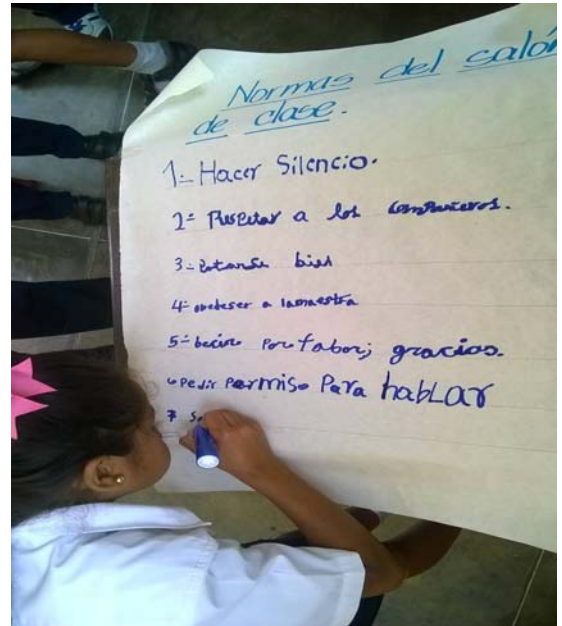 Normas del salón
de clase.
1- Hacer Silencio.
2- Respetar a los compañeros.
3- Portarse bien
4- obedeser a lamaestra
5- Decir Por fabor; gracias.
6 Pedir Permiso Para hablar
7 Se